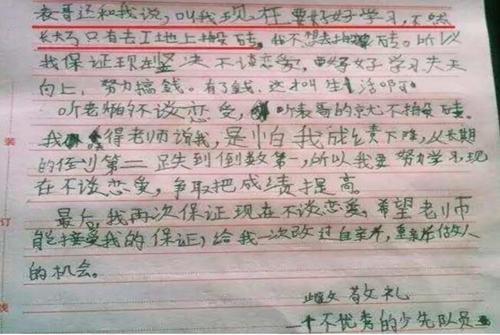 表哥还和我说,叫我现在要好好学习,不然
长大了只有去工地上搬砖。我不想去搬砖。所以
我保证现在坚决不谈恋爱,要好好学习天天
向上,努力搞钱。有了钱,这才叫生活啊
听老师的不谈恋爱,听表哥的就不搬砖。
我觉得老师说我,是怕我成绩下降,从长期
的倒数第二跌到倒数第一,所以我要努力学习,现
在不谈恋爱,争取把成绩提高。
最后,我再次保证现在不谈恋爱,希望老师
能接受我的保证,给我一次改过自新,重新做人
的机会。
敬礼
一个不优秀的少先队员
装
订
线